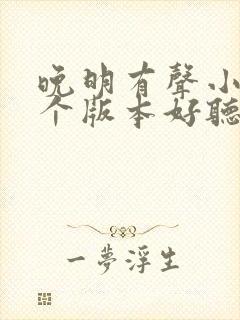 晚明有聲小
个版本好聽
一夢浮生